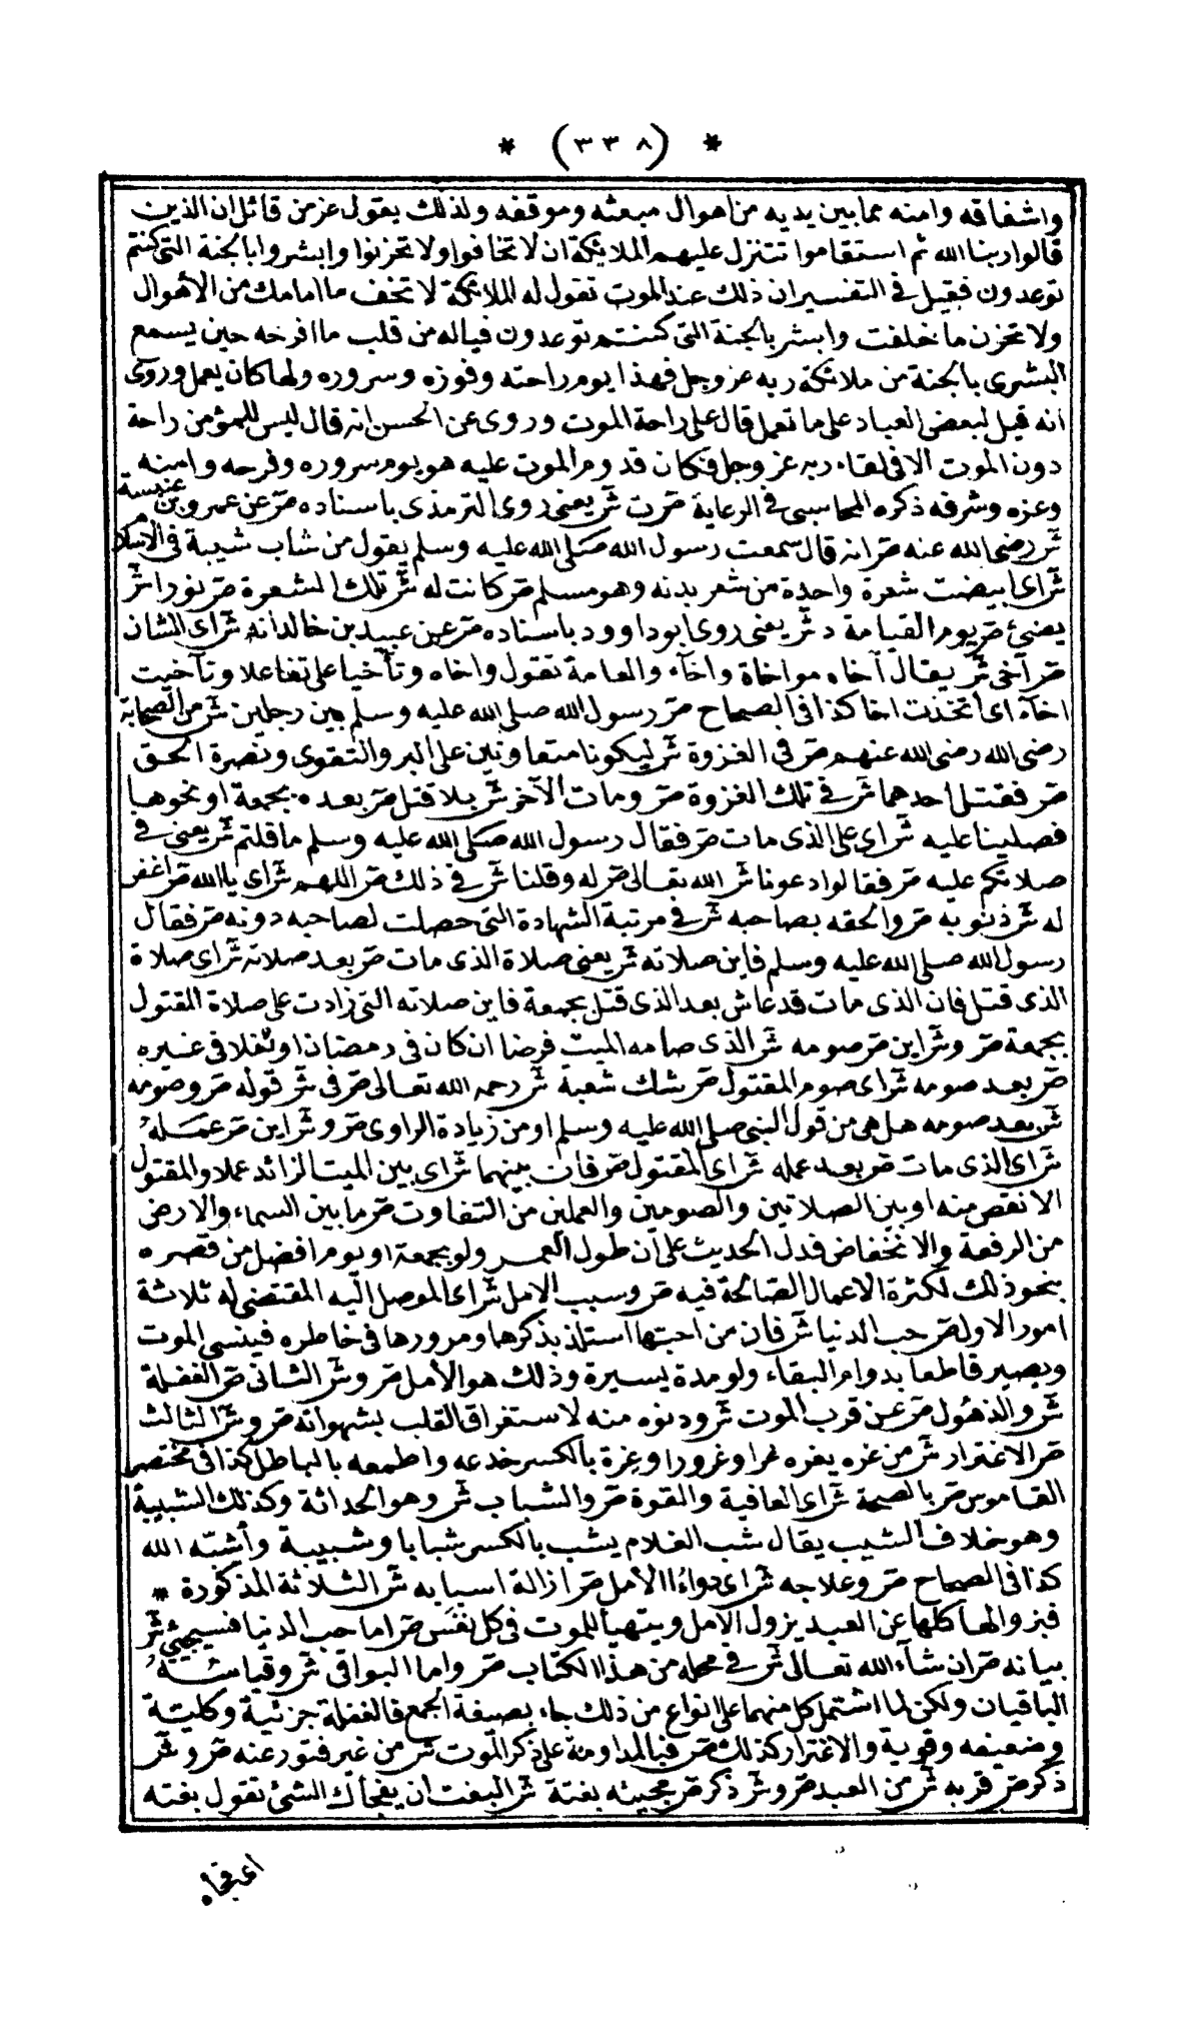 * (٣٣٨) *
واشفاقه وامنه مما بين يديه من اهوال مبعثه وموقفه ولذلك يقول عز من قائل ان الذين
قالوا ربنا الله ثم استقاموا تتنزل عليهم الملائكة ان لا تخافوا ولا تحزنوا وابشروا بالجنة التى كنتم
توعدون فقيل فى التفسير ان ذلك عند الموت تقول له الملائكة لا تخف ما امامك من الأهوال
ولا تحزن ما خلفت وابشر بالجنة التى كنتم توعدون فياله من قلب ما افرحه حين يسمع
البشرى بالجنة من ملائكة ربه عز وجل فهذا يوم راحته وفوزه وسروره ولها كان يعمل وروى
انه قيل لبعض العباد على ما تعمل قال على راحة الموت وروى عن الحسن انه قال ليس للمؤمن راحة
دون الموت الا فى لقاء ربه عز وجل فكان قدوم الموت عليه هو يوم سروره وفرحه وامنه
وعزه وشرفه ذكره المحاسبى فى الرعاية صرت ش يعنى روى الترمذى باسناده ص عن عمرو بن عنبسة
ش رضى الله عنه ص انه قال سمعت رسول الله صلى الله عليه وسلم يقول من شاب شيبة فى الاسلام
ش اى ابيضت شعرة واحدة من شعر بدنه وهو مسلم ص كانت له ش تلك الشعرة ص نورا ش
يضئ ص يوم القيامة د ش يعنى روى ابو داوود باسناده ص عن عبيد بن خالد انه ش اى الشان
ص آخى ش يقال آخاه مواخاة واخآء والعامة تقول واخاه وتآخيا على تفاعلا وتآخيت
اخآء اى اتخذت اخا كذا فى الصحاح ص رسول الله صلى الله عليه وسلم بين رجلين ش من الصحابة
رضى الله رضى الله عنهم ص فى الغزوة ش ليكونا متعاونين على البر والتقوى ونصرة الحق
ص فقتل احدهما ش فى تلك الغزوة ص ومات الآخر ش بلا قتل ص بعده بجمعة او نحوها
فصلينا عليه ش اى على الذى مات ص فقال رسول الله صلى الله عليه وسلم ما قلتم ش يعنى فى
صلاتكم عليه ص فقالوا دعونا ش الله تعالى ص له وقلنا ش فى ذلك ص اللهم ش اى يا الله ص اغفر
له ش ذنوبه ص والحقه بصاحبه ش فى مرتبة الشهادة التى حصلت لصاحبه دونه ص فقال
رسول الله صلى الله عليه وسلم فاين صلاته ش يعنى صلاة الذى مات ص بعد صلاته ش اى صلاة
الذى قتل فان الذى مات قد عاش بعد الذى قتل بجمعة فاين صلاته التى زادت على صلاة المقتول
بجمعة ص وش اين ص صومه ش الذى صامه الميت فرضا ان كان فى رمضان او نفلا فى غيره
ص بعد صومه ش اى صوم المقتول ص شك شعبة ش رحمه الله تعالى ص فى ش قوله ص وصومه
ش بعد صومه هل هى من قول النبى صلى الله عليه وسلم او من زيادة الراوى ص وش اين ص عمله
ش اى الذى مات ص بعد عمله ش اى المقتول ص فان بينهما ش اى بين الميت الزائد عملا والمقتول
الانقص منه او بين الصلاتين والصومين والعملين من التفاوت ص ما بين السماء والارض
من الرفعة والانخفاض فدل الحديث على ان طول العمر ولو بجمعة او يوم افضل من قصره
بنحو ذلك لكثرة الاعمال الصالحة فيه ص وسبب الامل ش اى الموصل اليه المقتضى له ثلاثة
امور الاول ص حب الدنيا ش فان من احبها استلذ بذكرها ومرورها فى خاطره فينسى الموت
ويصير قاطعا بدوام البقاء ولو مدة يسيرة وذلك هو الأمل ص وش الثانى ص الغفلة
ش والذهول ص عن قرب الموت ش ودنوه منه لاستغراق القلب بشهواته ص وش الثالث
ص الاغترار ش من غره يغره غرا وغرورا وغرة بالكسر خدعه واطمعه بالباطل كذا فى مختصر
القاموس ص بالصحة ش اى العافية والقوة ص والشباب ش وهو الحداثة وكذلك الشبيبة
وهو خلاف الشيب يقال شب الغلام يشب بالكسر شبابا وشبيبة وأشبّه الله
كذا فى الصحاح ص وعلاجه ش اى دواء الامل ص ازالة اسبابه ش الثلاثة المذكورة *
فبزوالها كلها عن العبد يزول الأمل ويتهيأ للموت فى كل نفس ص اما حب الدنيا فسيجئ ش
بيانه ص ان شآء الله تعالى ش فى محله من هذا الكتاب ص واما البواقى ش وقياسه
الباقيان ولكن لما اشتمل كل منهما على انواع من ذلك جاء بصيغة الجمع فالغفلة جزئية وكلية
وضعيفه وقوية والاغترار كذلك ص فبالمداومة على ذكر الموت ش من غير فتور عنه ص وش
ذكر ص قربه ش من العبد ص وش ذكر ص مجيئه بغتة ش البغت ان يفجأك الشئ تقول بغته
اى فجأه